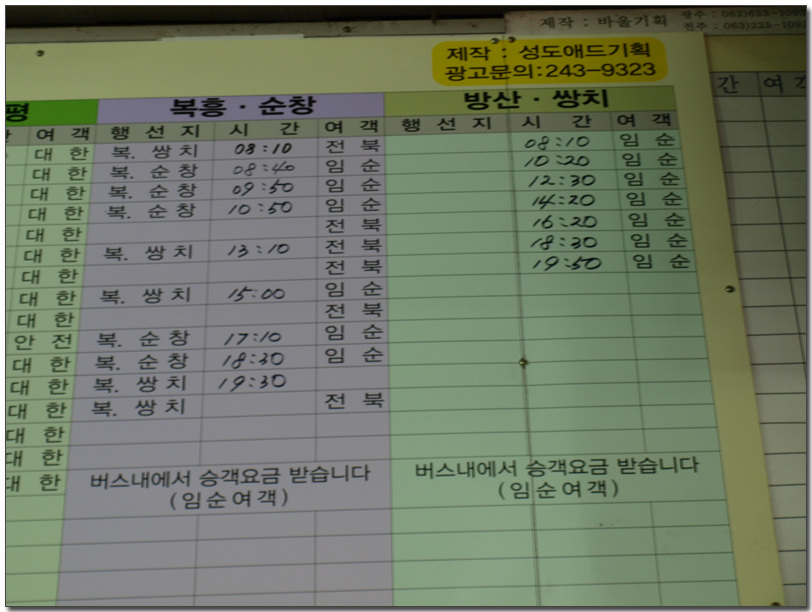 제작 : 바울기획 광주 : 062)653-109
전주 : 063)223-109
제작 : 성도애드기획
광고문의:243-9323
간 여 객
평 복흥 · 순창 방산 · 쌍치
여 객 행 선 지 시 간 여 객 행 선 지 시 간 여 객
대 한 복. 쌍 치 08:10 전 북 08:10 임 순
대 한 복. 순 창 08:40 임 순 10:20 임 순
대 한 복. 순 창 09:50 임 순 12:30 임 순
대 한 복. 순 창 10:50 임 순 14:20 임 순
대 한 전 북 16:20 임 순
대 한 복. 쌍 치 13:10 전 북 18:30 임 순
대 한 전 북 19:50 임 순
대 한 복. 쌍 치 15:00 임 순
대 한 전 북
안 전 복. 순 창 17:10 임 순
대 한 복. 순 창 18:30 임 순
대 한 복. 쌍 치 19:30
대 한 복. 쌍 치 전 북
대 한
대 한
대 한 버스내에서 승객요금 받습니다 버스내에서 승객요금 받습니다
(임순여객) (임순여객)